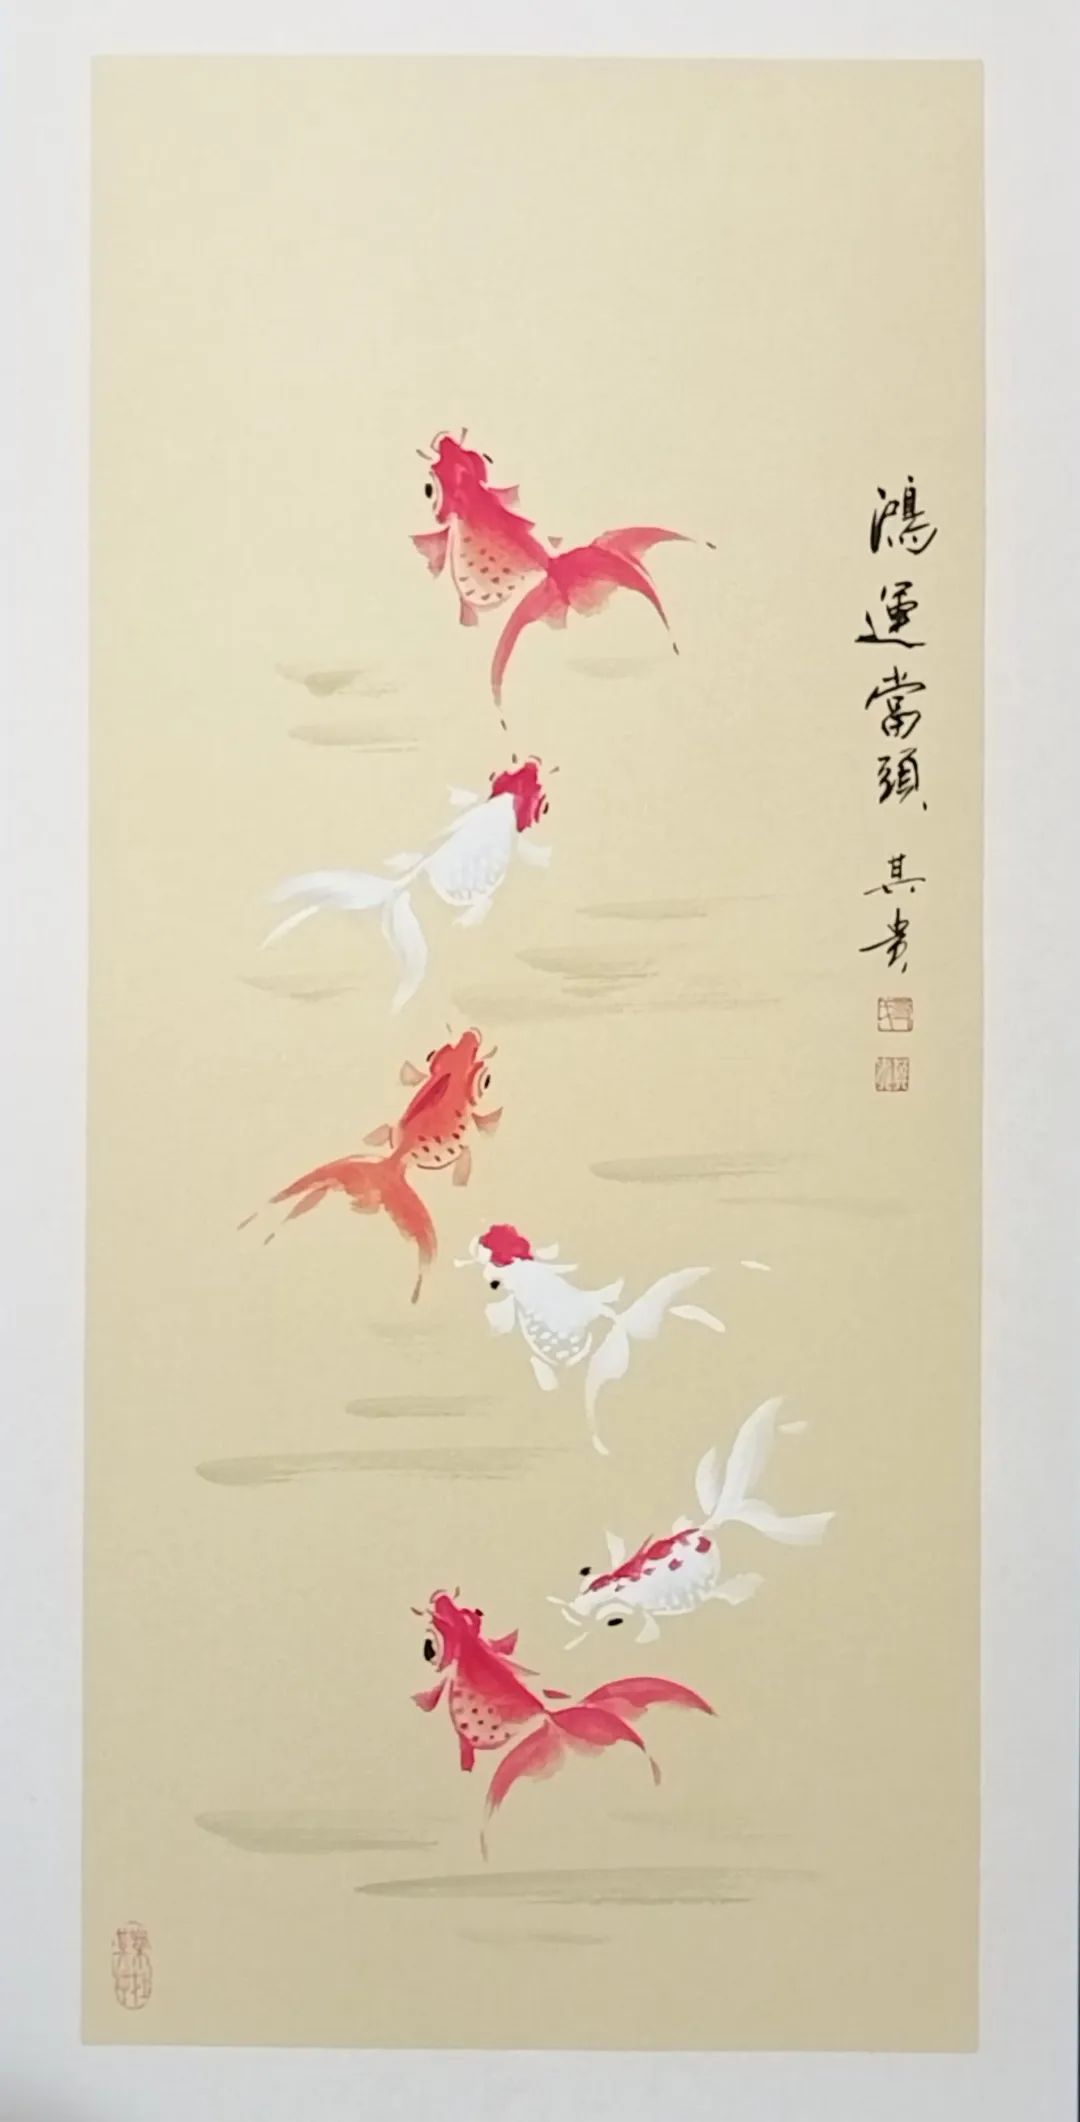 鴻運當頭
其贵